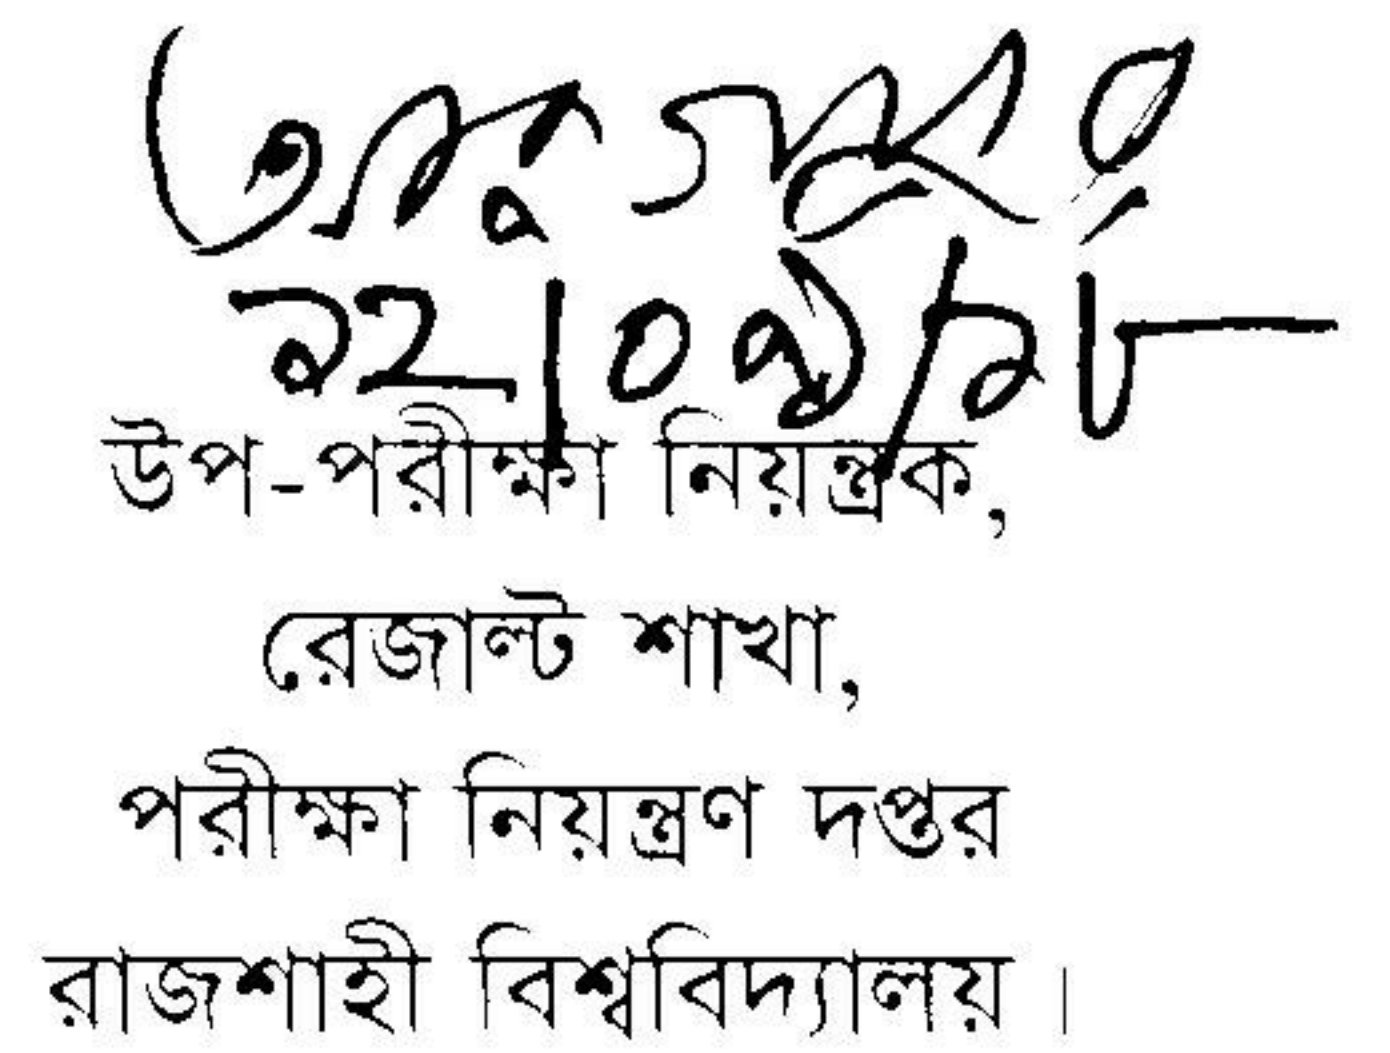 উপ-পরীক্ষা নিয়ন্ত্রক,
রেজাল্ট শাখা,
পরীক্ষা নিয়ন্ত্রণ দপ্তর
রাজশাহী বিশ্ববিদ্যালয়।